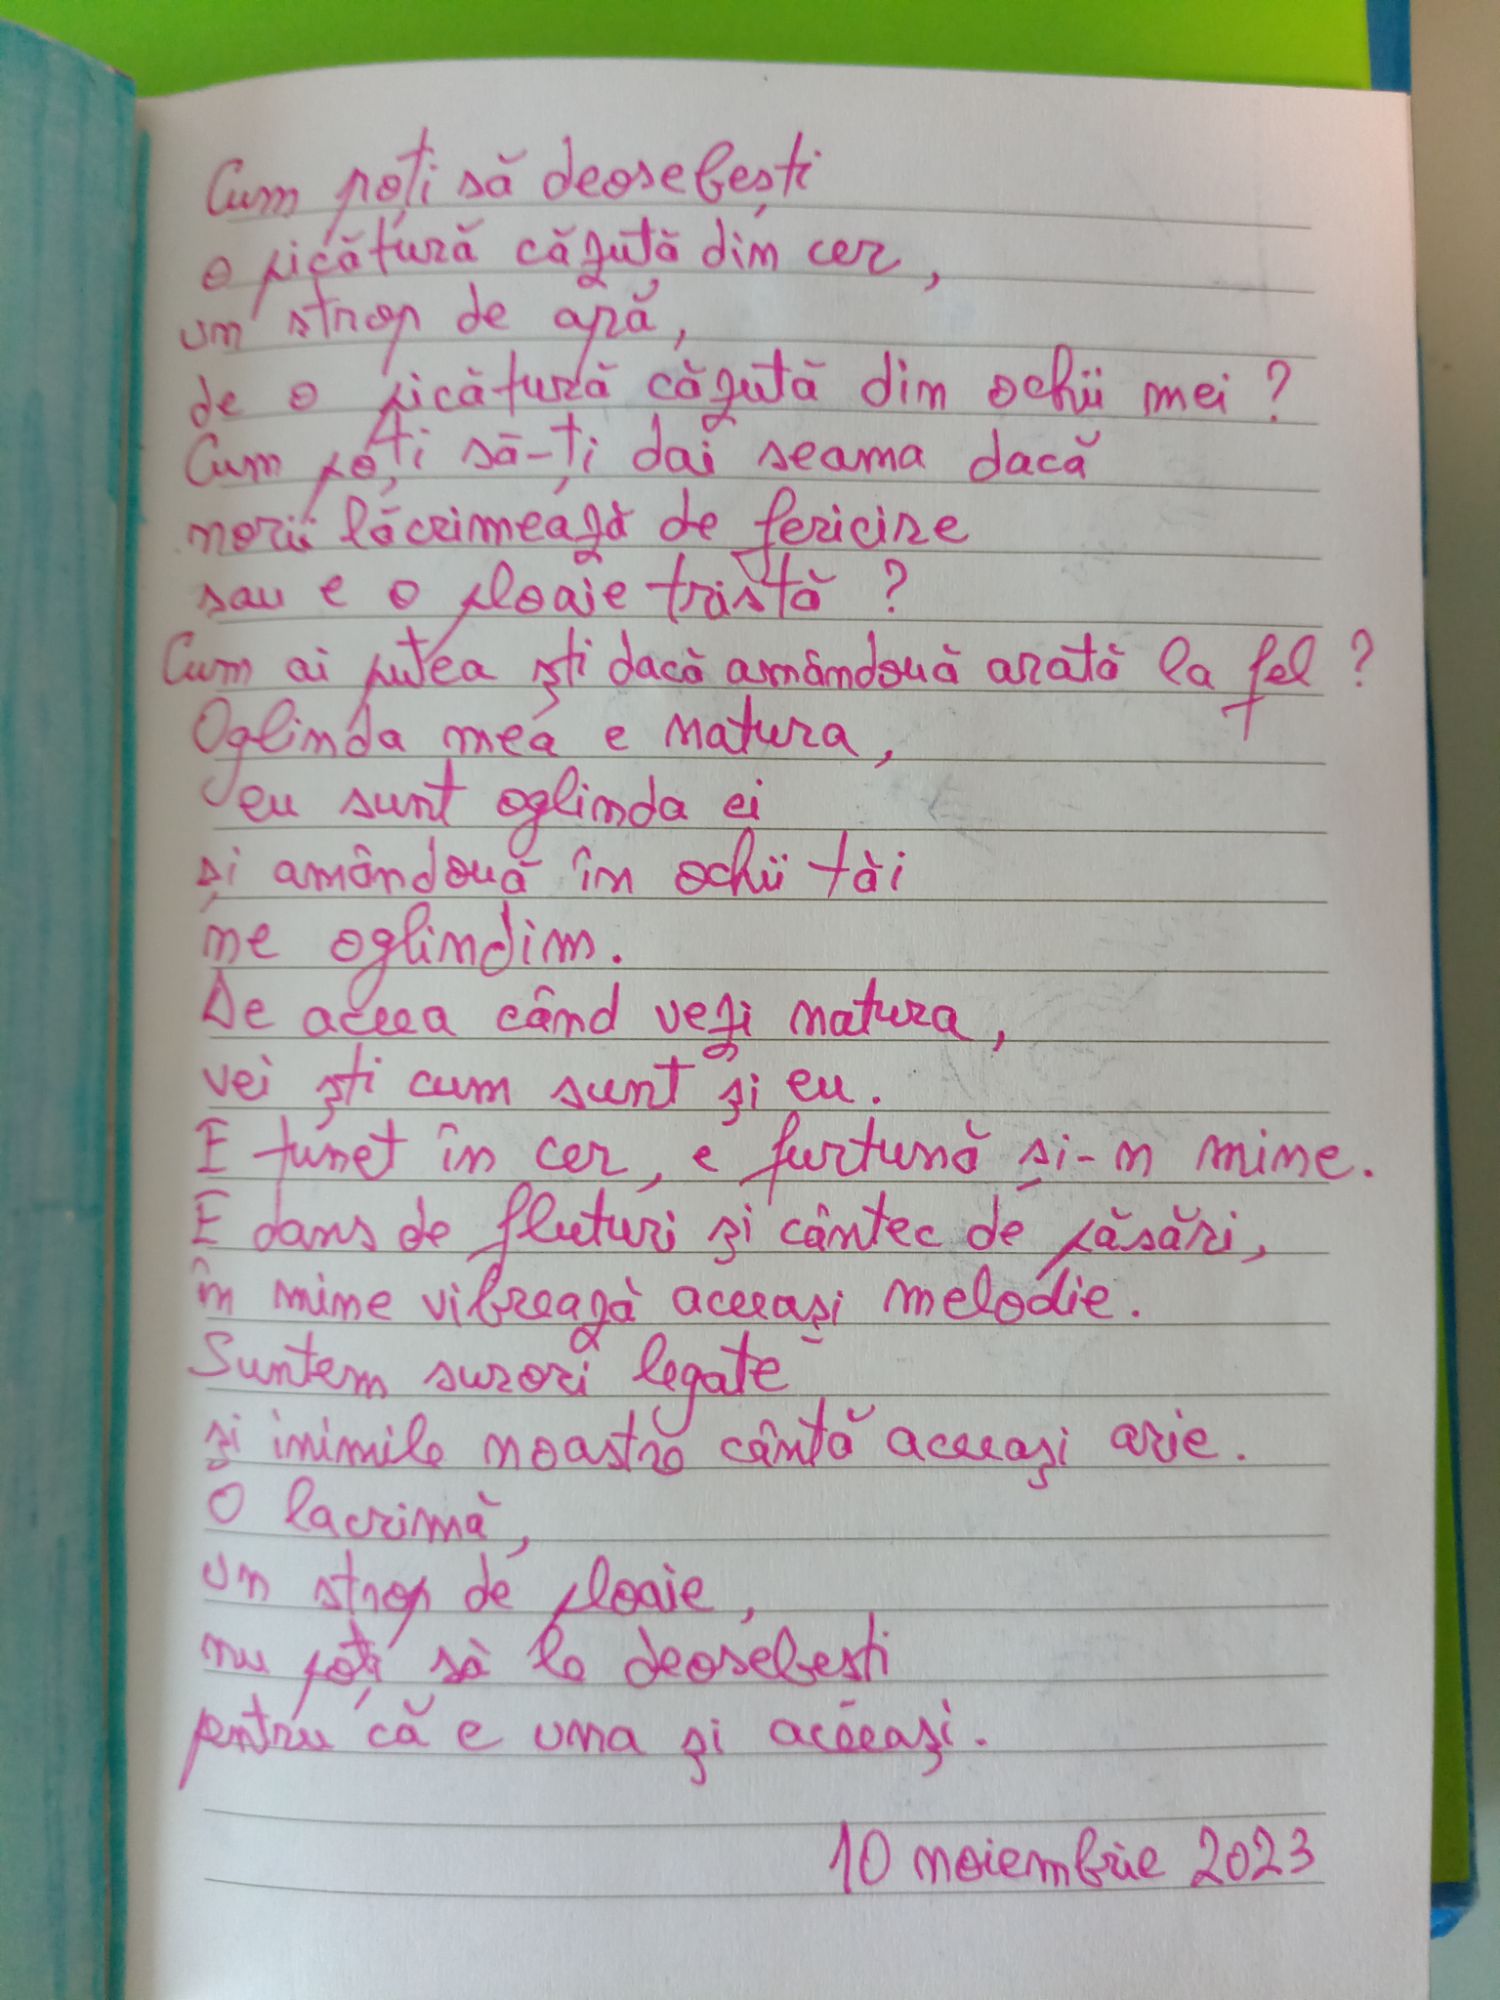 Cum poți să deosebești
o picătură căzută din cer,
un strop de apă,
de o picătură căzută din ochii mei?
Cum poți să-ți dai seama dacă
norii lăcrimează de fericire
sau e o ploaie tristă?
Cum ai putea ști dacă amândouă arată la fel?
Oglinda mea e natura,
eu sunt oglinda ei
și amândouă în ochii tăi
ne oglindim.
De aceea când vezi natura,
vei ști cum sunt și eu.
E tunet în cer, e furtună și-n mine.
E dans de fluturi și cântec de păsări,
în mine vibrează aceeași melodie.
Suntem surori legate
și inimile noastre cântă aceeași arie.
O lacrimă,
un strop de ploaie,
nu poți să le deosebești
pentru că e una și aceeași.
10 noiembrie 2023